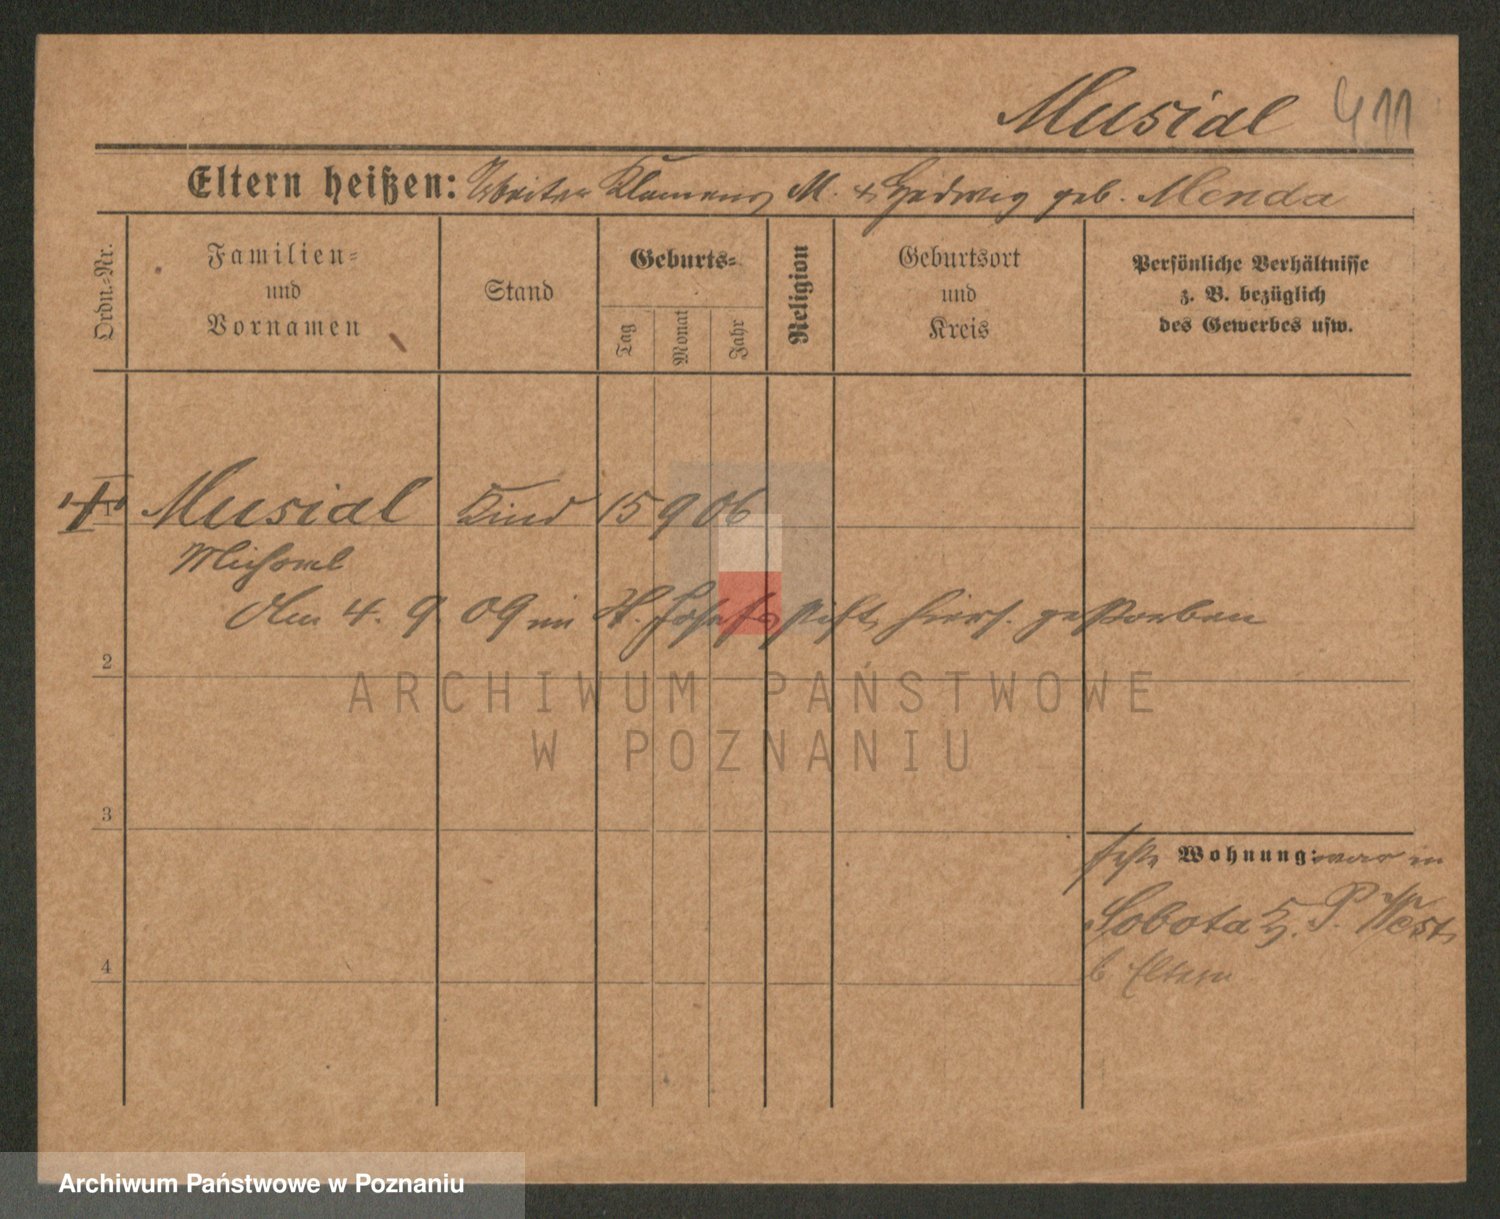 Musial 411
Eltern heißen: Arbeiter Klemens M. & Hedwig geb. Menda
Ordn.-Nr.
Familien- und Vornamen
Stand
Geburts-
Tag
Monat
Jahr
Religion
Geburtsort und Kreis
Persönliche Verhältnisse
z. B. bezüglich
des Gewerbes usw.
1 Musial Kind 15 9 06
Michael
Am 4. 9 09 im St. Josefsstift hiers. gestorben
2
3
4
Wohnung: war in
Sobota Kr. P. West
b Eltern
ARCHIWUM PAŃSTWOWE
W POZNANIU
Archiwum Państwowe w Poznaniu